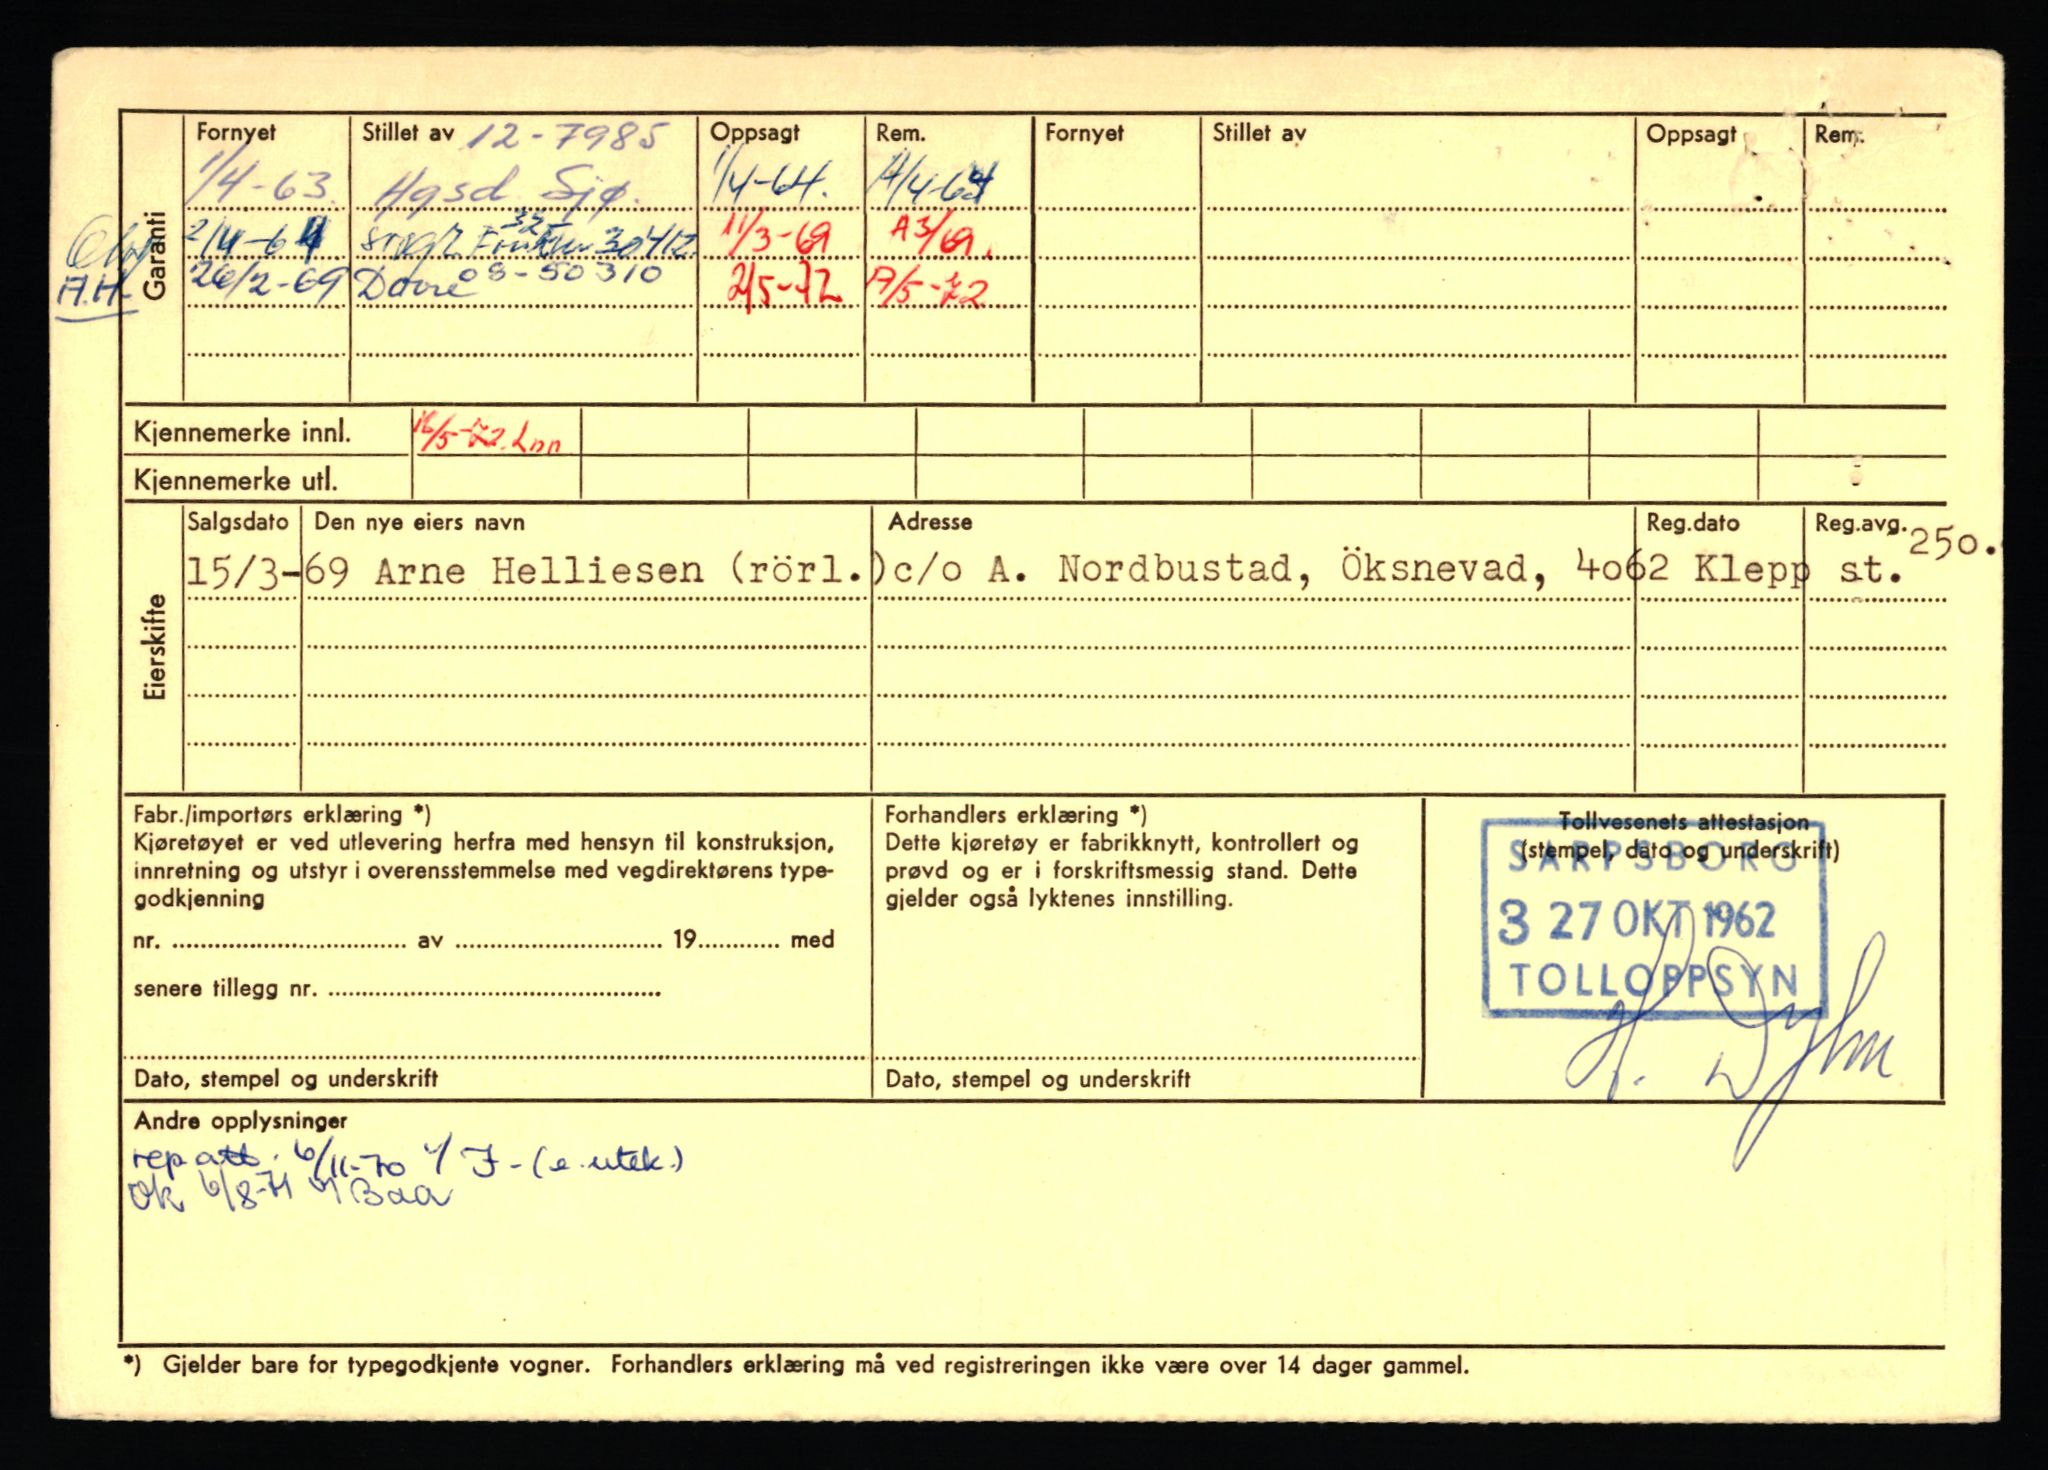 Garanti
Fornyet Stillet av 12-7985 Oppsagt Rem. Fornyet Stillet av Oppsagt Rem.
1/4-63. Hgsd Sjø. 1/4-64. 14/4-64
2/4-64 11/3-69 A3/69.
A.H. 26/2-69 Dovre 08-50310 2/5-72 A/5-72
Kjennemerke innl. 16/5-72.
Kjennemerke utl.
Eierskifte
Salgsdato Den nye eiers navn Adresse Reg.dato Reg.avg.
15/3-69 Arne Helliesen (rörl.)c/o A. Nordbustad, Öksnevad, 4o62 Klepp st. 25o.
Fabr./importørs erklæring *)
Kjøretøyet er ved utlevering herfra med hensyn til konstruksjon,
innretning og utstyr i overensstemmelse med vegdirektørens type-
godkjenning
nr. av 19 med
senere tillegg nr.
Dato, stempel og underskrift
Forhandlers erklæring *)
Dette kjøretøy er fabrikknytt, kontrollert og
prøvd og er i forskriftsmessig stand. Dette
gjelder også lyktenes innstilling.
Dato, stempel og underskrift
Tollvesenets attestasjon
(stempel, dato og underskrift)
SARPSBORG
3 27 OKT 1962
TOLLOPPSYN
Andre opplysninger
rep att. 6/11-70 J-(e.utek.)
Ok 6/8-71 Baa
*) Gjelder bare for typegodkjente vogner. Forhandlers erklæring må ved registreringen ikke være over 14 dager gammel.